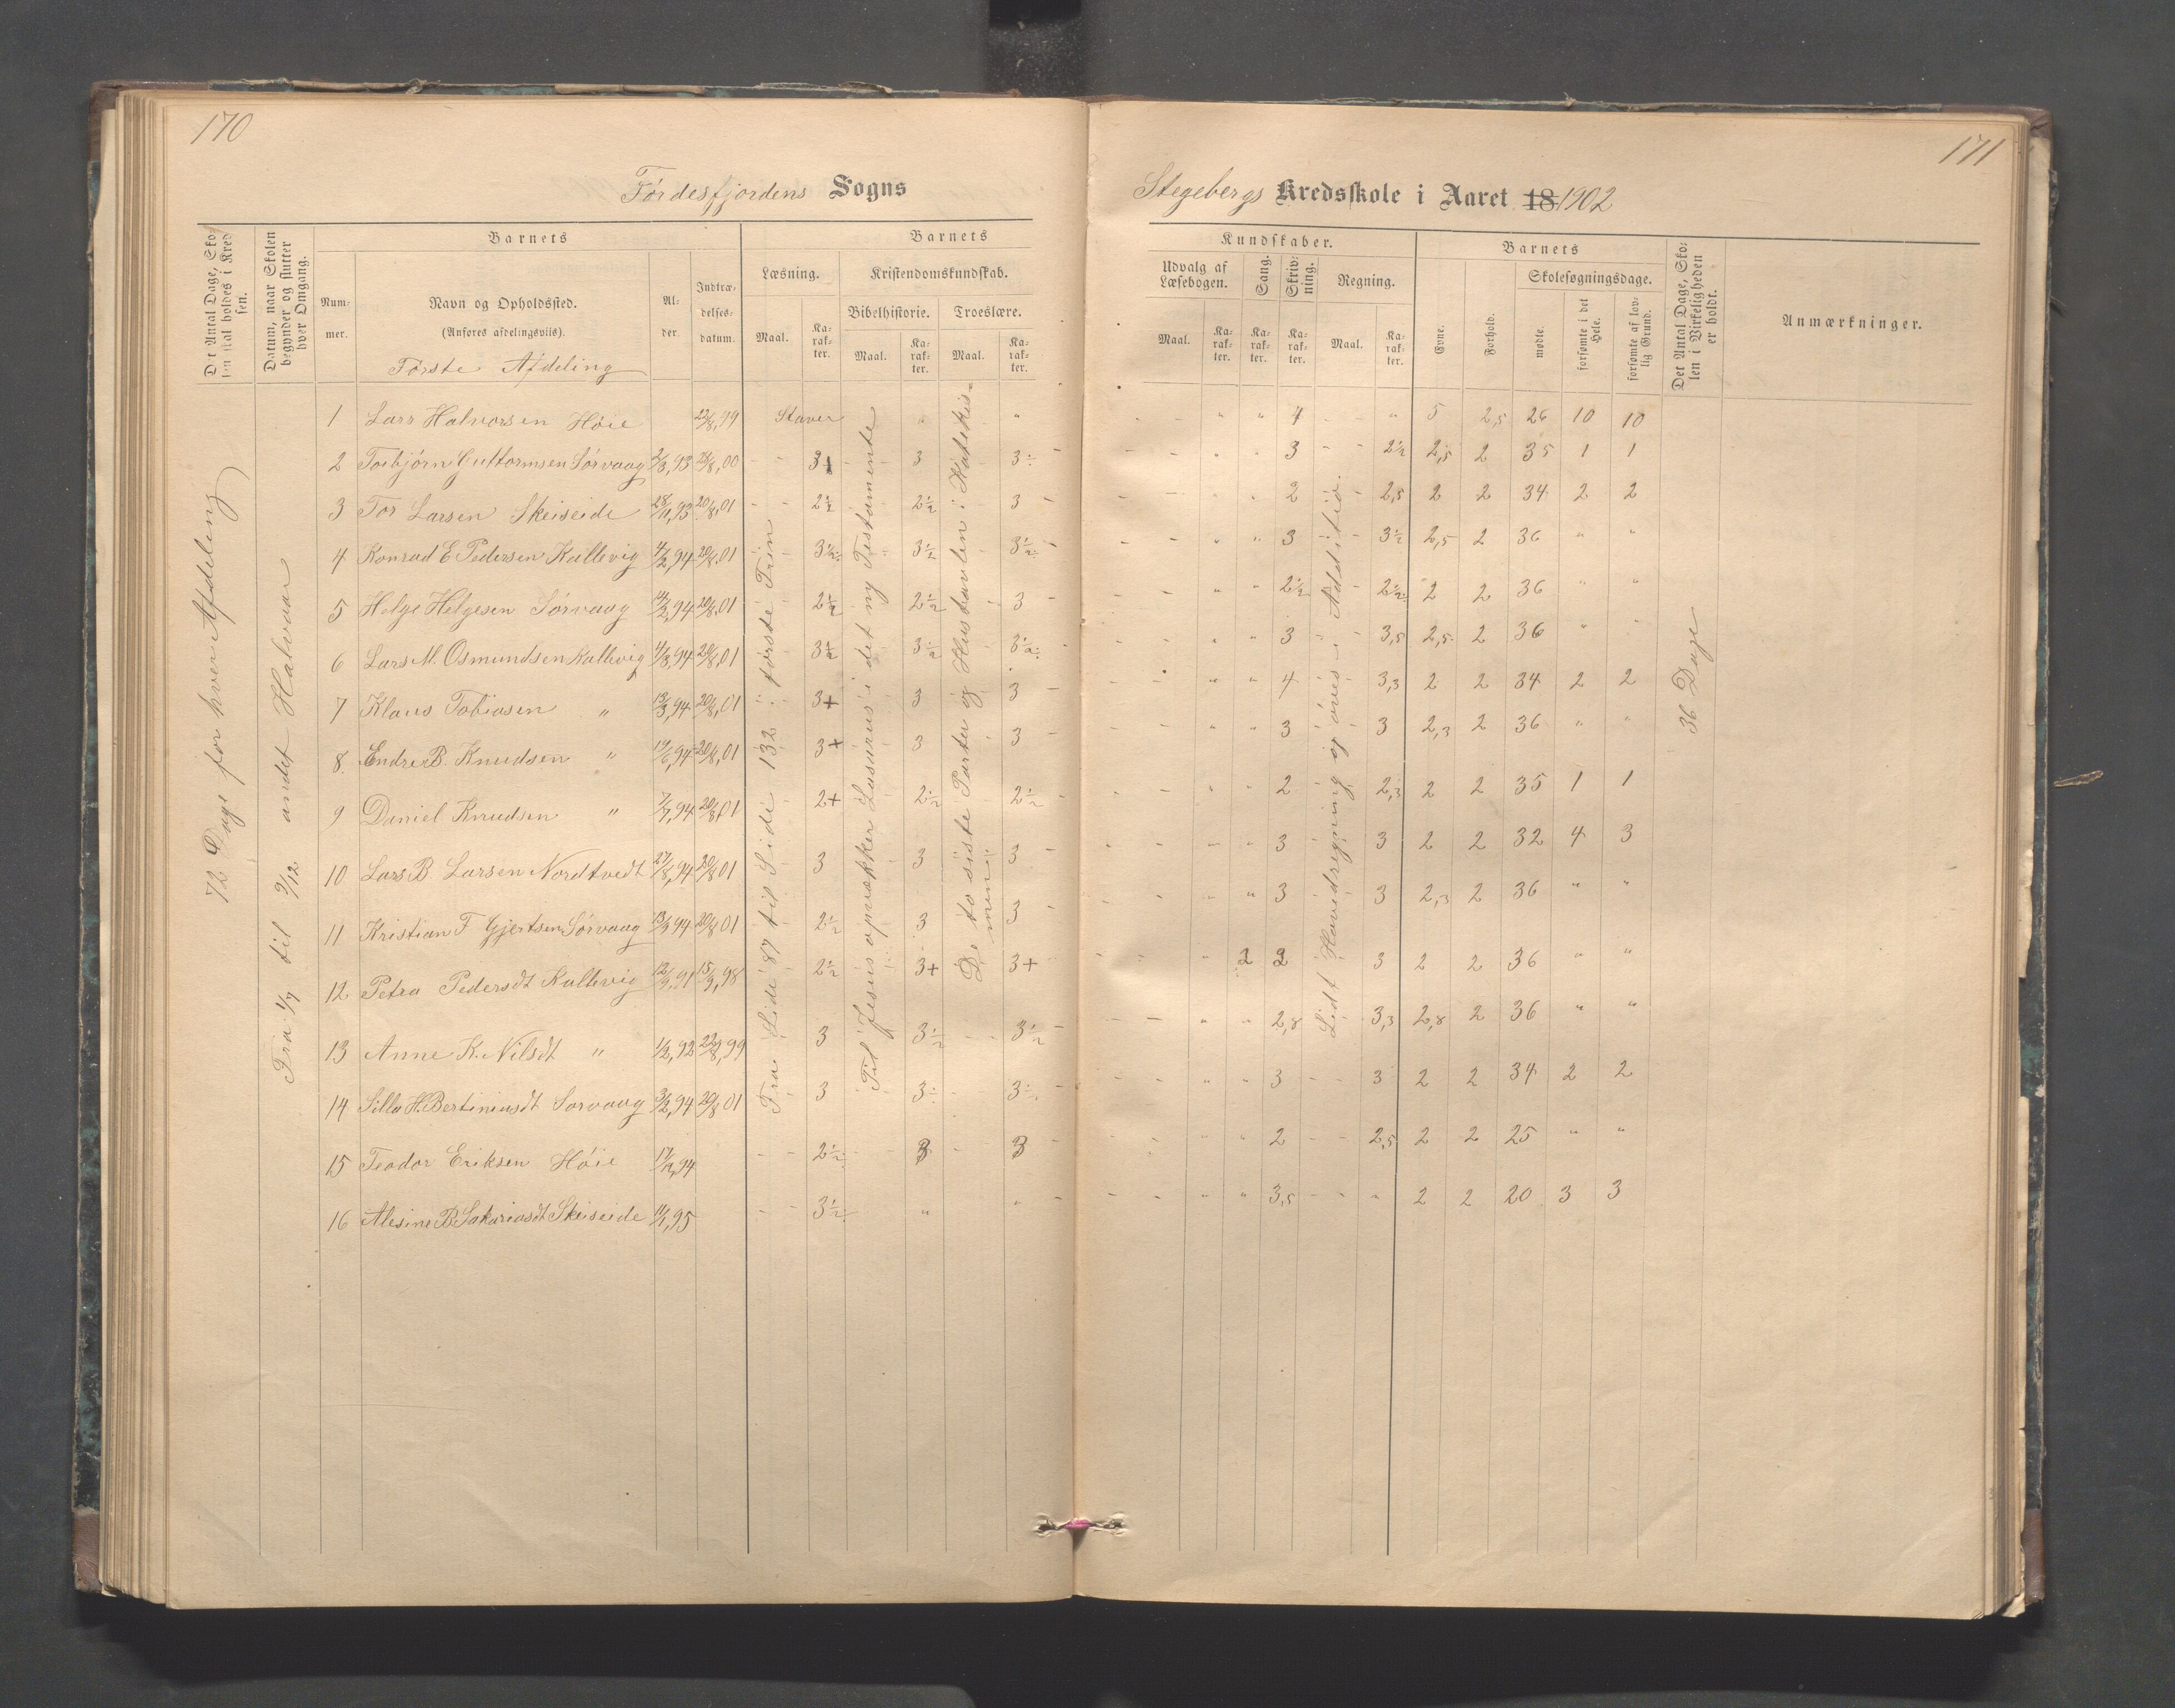 170
Førdesfjordens Sogns
Det Antal Dage, Skolen skal holdes i Kredsen.
Datum, naar Skolen begynder og slutter hver Omgang.
Barnets
Barnets
Nummer.
Navn og Opholdssted.
(Anføres afdelingsviis).
Første Afdeling
Alder.
Indtrædelsesdatum.
Læsning.
Kristendomskundskab.
Bibelhistorie. Troeslære.
Maal. Karakter. Maal. Karakter. Maal. Karakter.
72 Dage for hver Afdeling
Fra 1/7 til 9/12 andet Halvaar
Fra Side 87 til Side 132 i første Trin
Til Jesus opvækker Lasarus i det ny Testamente
De to siste Parter og Hustavlen i Katekismen
1 Lars Halvorsen Høie 22/8,99 Staver " "
2 Torbjørn Guttormsen Sørvaag 2/3,93 28/8,00 - - 3+ - 3 - 3÷ -
3 Tor Larsen Skeiseide 28/11,93 20/8,01 - - 2½ 2½ 3 -
4 Konrad E Pedersen Kallevig 4/2,94 20/8,01 - - 3½÷ 3½ 3½÷
5 Helge Helgesen Sørvaag 14/2,94 20/8,01 2½ 2½ 3 -
6 Lars M. Osmundsen Kallevig 4/3,94 20/8,01 3½ 3½ 3½÷
7 Klaus Tobiasen " 13/3,94 20/8,01 3+ 3 3 -
8 Endre B. Knudsen " 19/6,94 20/8,01 3+ 3 3 -
9 Daniel Knudsen " 7/7,94 20/8,01 2+ 2½ 2½ -
10 Lars B Larsen Nordtvedt 27/8,94 20/8,01 3 3 3 -
11 Kristian F Gjertsen Sørvaag 13/9,94 20/8,01 2½ 3 3 -
12 Petra Pedersdt Kallevig 12/9,91 15/9,98 2½ 3+ 3+
13 Anne K. Nilsdt " 1/2,92 22/8,99 3 3½ 3½ -
14 Silla H. Bertiniusdt Sørvaag 3/2,94 20/8,01 3 3÷ 3÷
15 Teodor Eriksen Høie 17/12,94 - - 2½÷ 3 3 -
16 Alesine B Sakariasdt Skeiseide 11/1,95 3½÷ " " -
171
Stegebergs Kredsskole i Aaret 18 1902
Kundskaber.
Barnets
Udvalg af Læsebogen.
Sang.
Skrivning.
Regning.
Maal. Karakter. Karakter. Karakter. Maal. Karakter.
Evne.
Forhold.
Skolesøgningsdage.
mødte.
forsømte i det Hele.
forsømte af lovlig Grund.
Det Antal Dage, Skolen i Virkeligheden er holdt.
Anmærkninger.
Lidt Hovedregning og øves i Additio.
36 Dage
- - " " 4 - - " 5 2,5 26 10 10
- - " " 3 - - 2½ 2,5 2 35 1 1
- - " " 2 - 2,5 2 2 34 2 2
- - " " 3 - 3½ 2,5 2 36 " "
- - " " 2½ - 2½÷ 2 2 36 " "
- - " " 3 - 3,5 2,5 2 36 " "
- - " " 4 - 3,3 2 2 34 2 2
- - " " 3 - 3 2,3 2 36 " "
- - " " 2 - 2,3 2 2 35 1 1
- - " " 3 - 3 2 2 32 4 3
- - " " 3 - 3 2,3 2 36 " "
- - " 2 2 3 2 2 36 " "
- - " " 2,8 - 3,3 2,8 2 36 " "
- - " " 3 - - 3 2 2 34 2 2
- - " " 2 - - 2,5 2 2 25 " "
- - " " 3,5 - - " 2 2 20 3 3